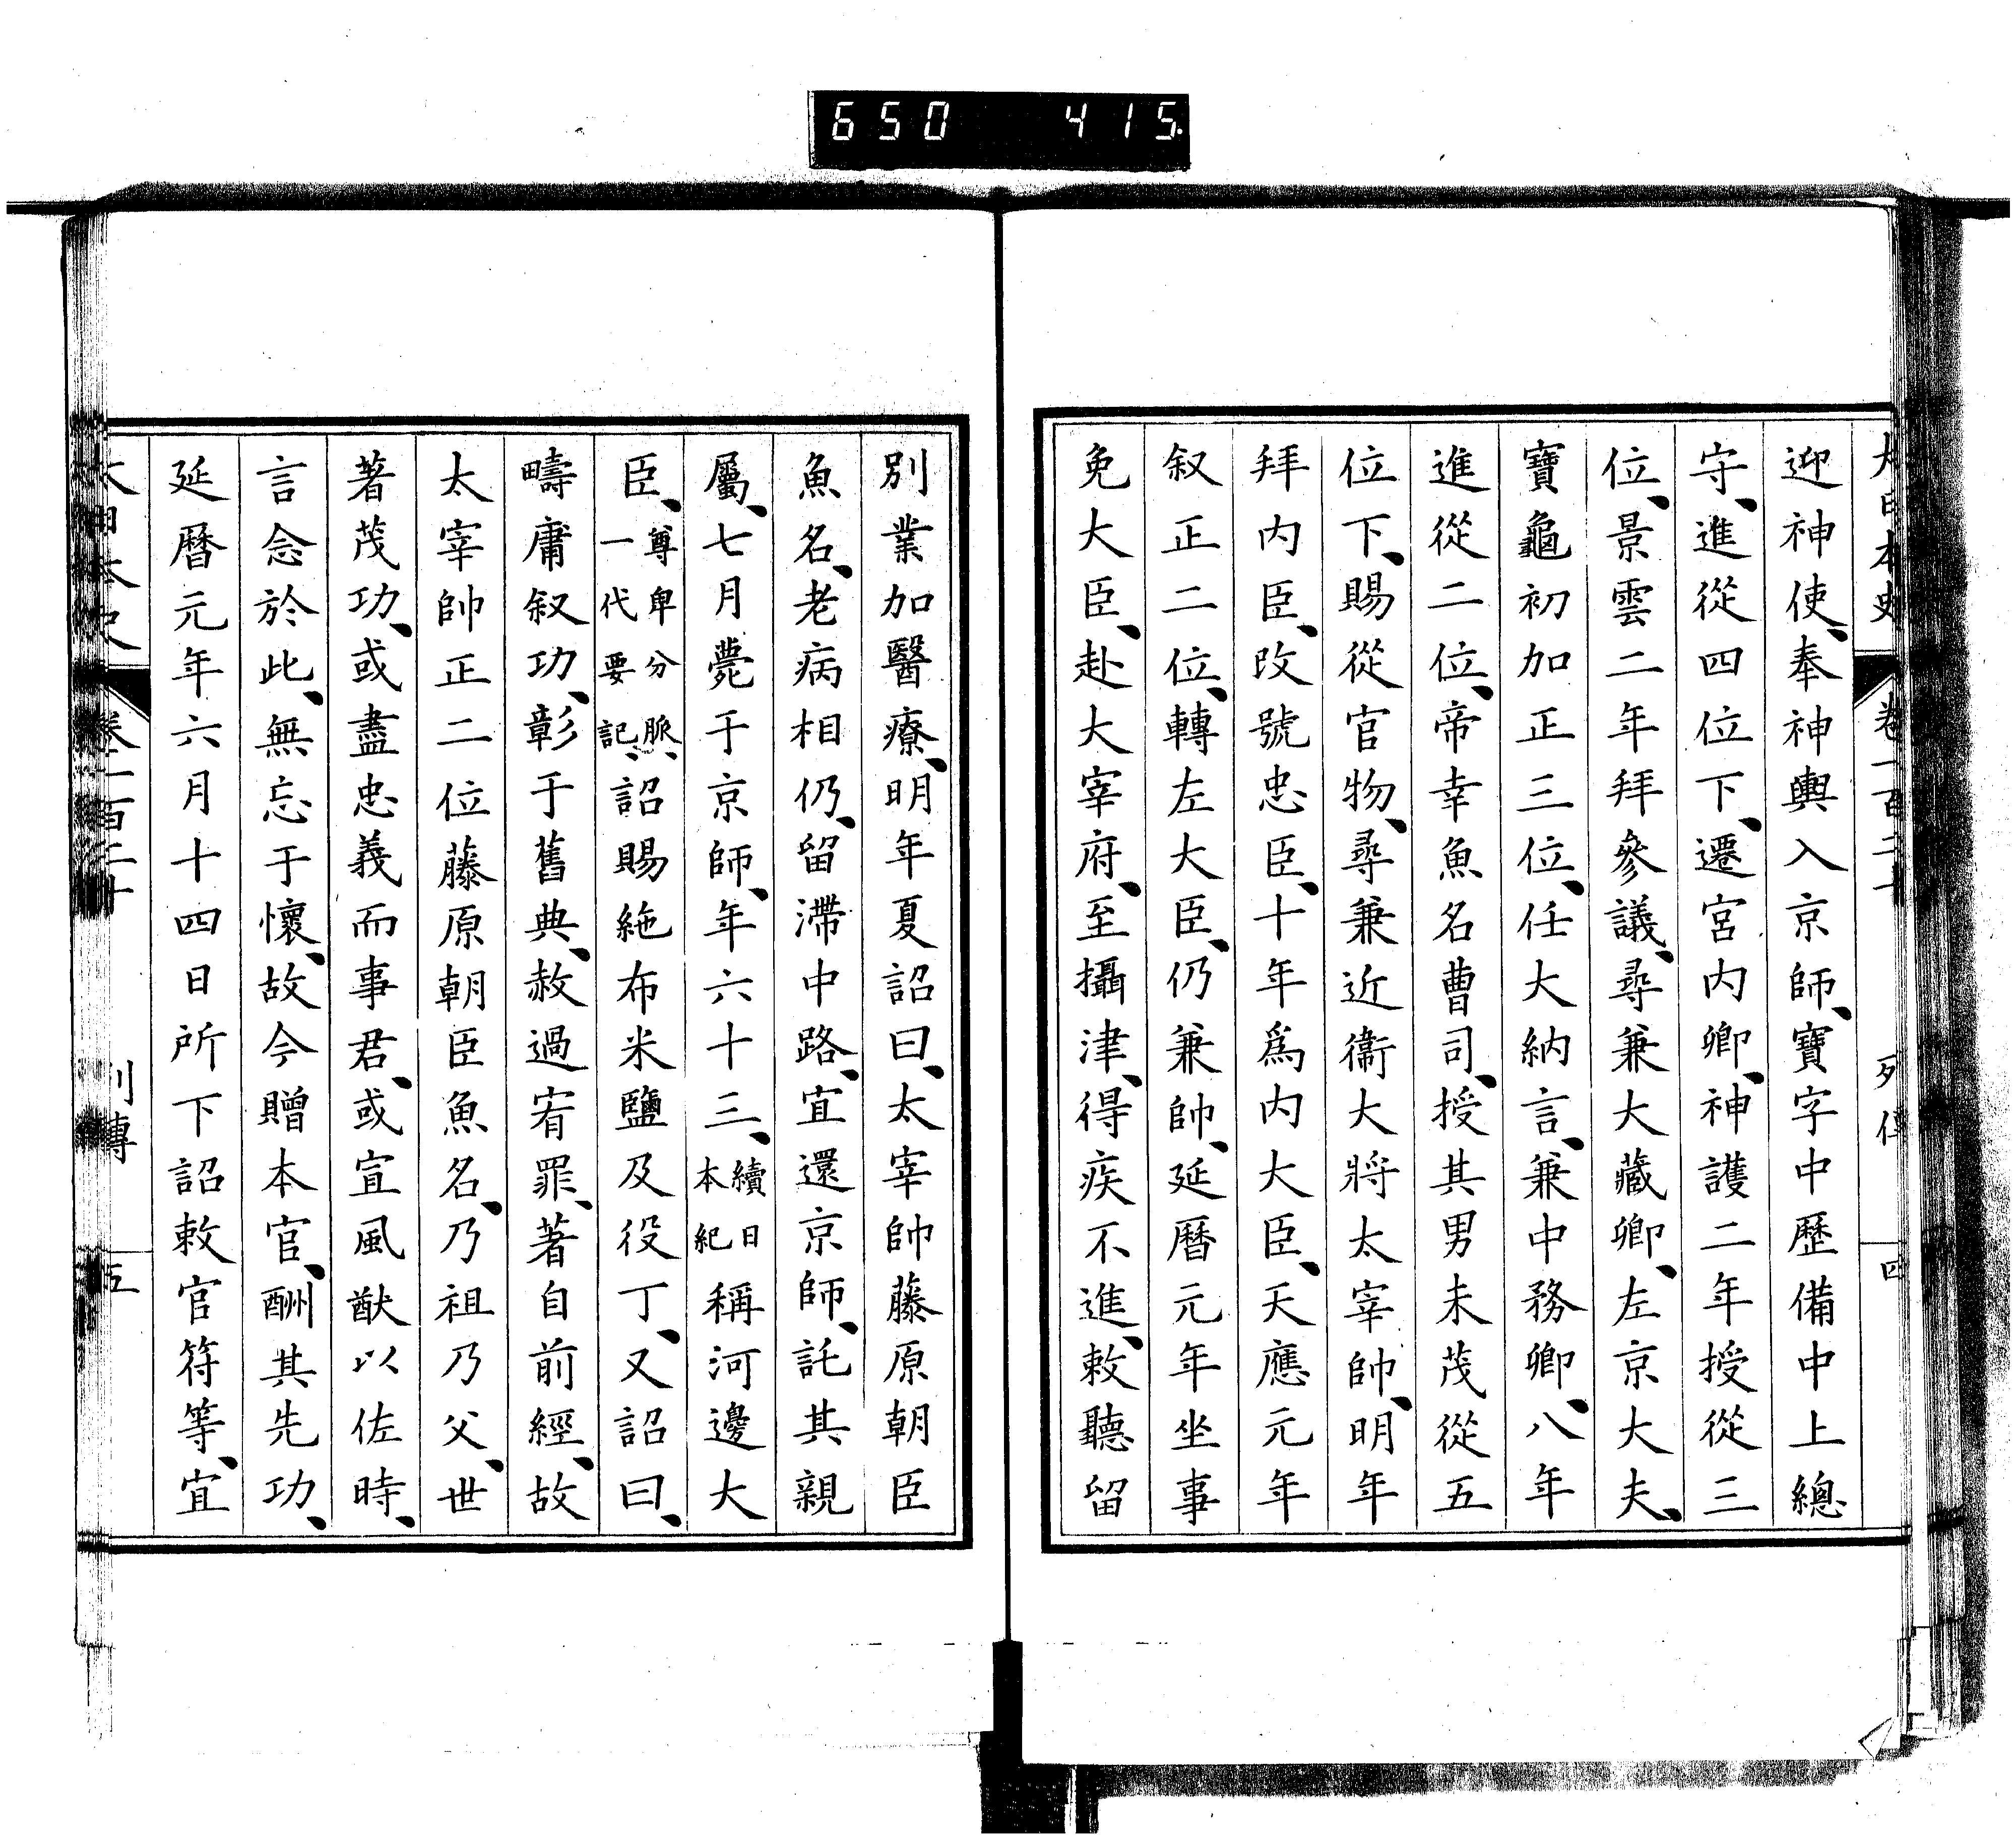 650 415
大日本史 卷一百二十 列傳 四
迎神使、奉神輿入京師、寶字中歷備中上總
守、進從四位下、遷宮内卿、神護二年授從三
位、景雲二年拜參議、尋兼大藏卿、左京大夫、
寶龜初加正三位、任大納言、兼中務卿、八年
進從二位、帝幸魚名曹司、授其男末茂從五
位下、賜從官物、尋兼近衞大將太宰帥、明年
拜内臣、改號忠臣、十年爲内大臣、天應元年
叙正二位、轉左大臣、仍兼帥、延曆元年坐事
免大臣、赴大宰府、至攝津、得疾不進、敕聽留
別業加醫療、明年夏詔曰、太宰帥藤原朝臣
魚名、老病相仍、留滯中路、宜還京師、託其親
屬、七月薨于京師、年六十三、續日本紀稱河邊大
臣、尊卑分脈、一代要記、詔賜絁布米鹽及役丁、又詔曰、
疇庸叙功、彰于舊典、赦過宥罪、著自前經、故
太宰帥正二位藤原朝臣魚名、乃祖乃父、世
著茂功、或盡忠義而事君、或宣風猷以佐時、
言念於此、無忘于懷、故今贈本官、酬其先功、
延曆元年六月十四日所下詔敕官符等、宜
大日本史 卷一百二十 列傳 五